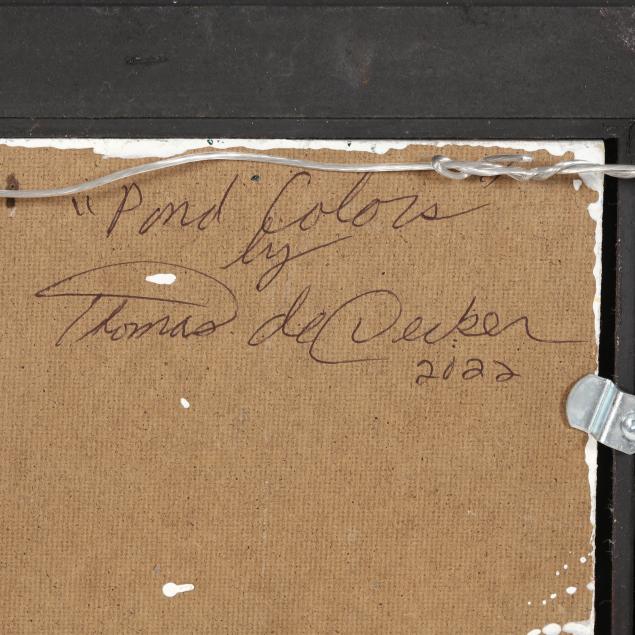 "Pond Colors"
by
Thomas deDecker
2022